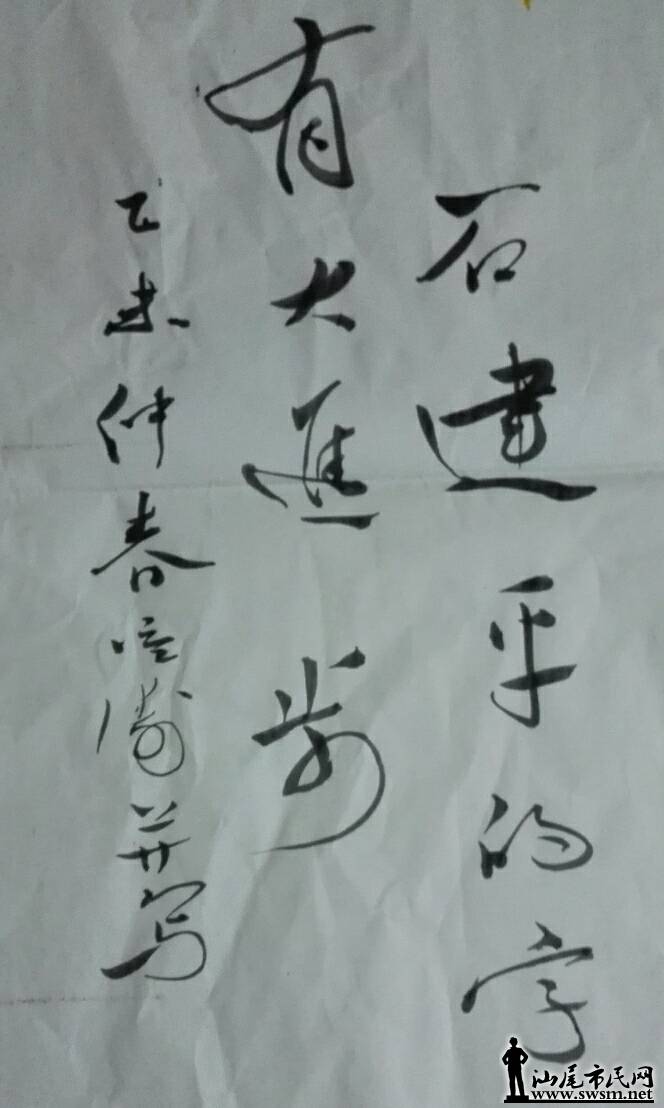 石建平的字
有大進步
乙未仲春 并写
汕尾市民网
www.swsm.net